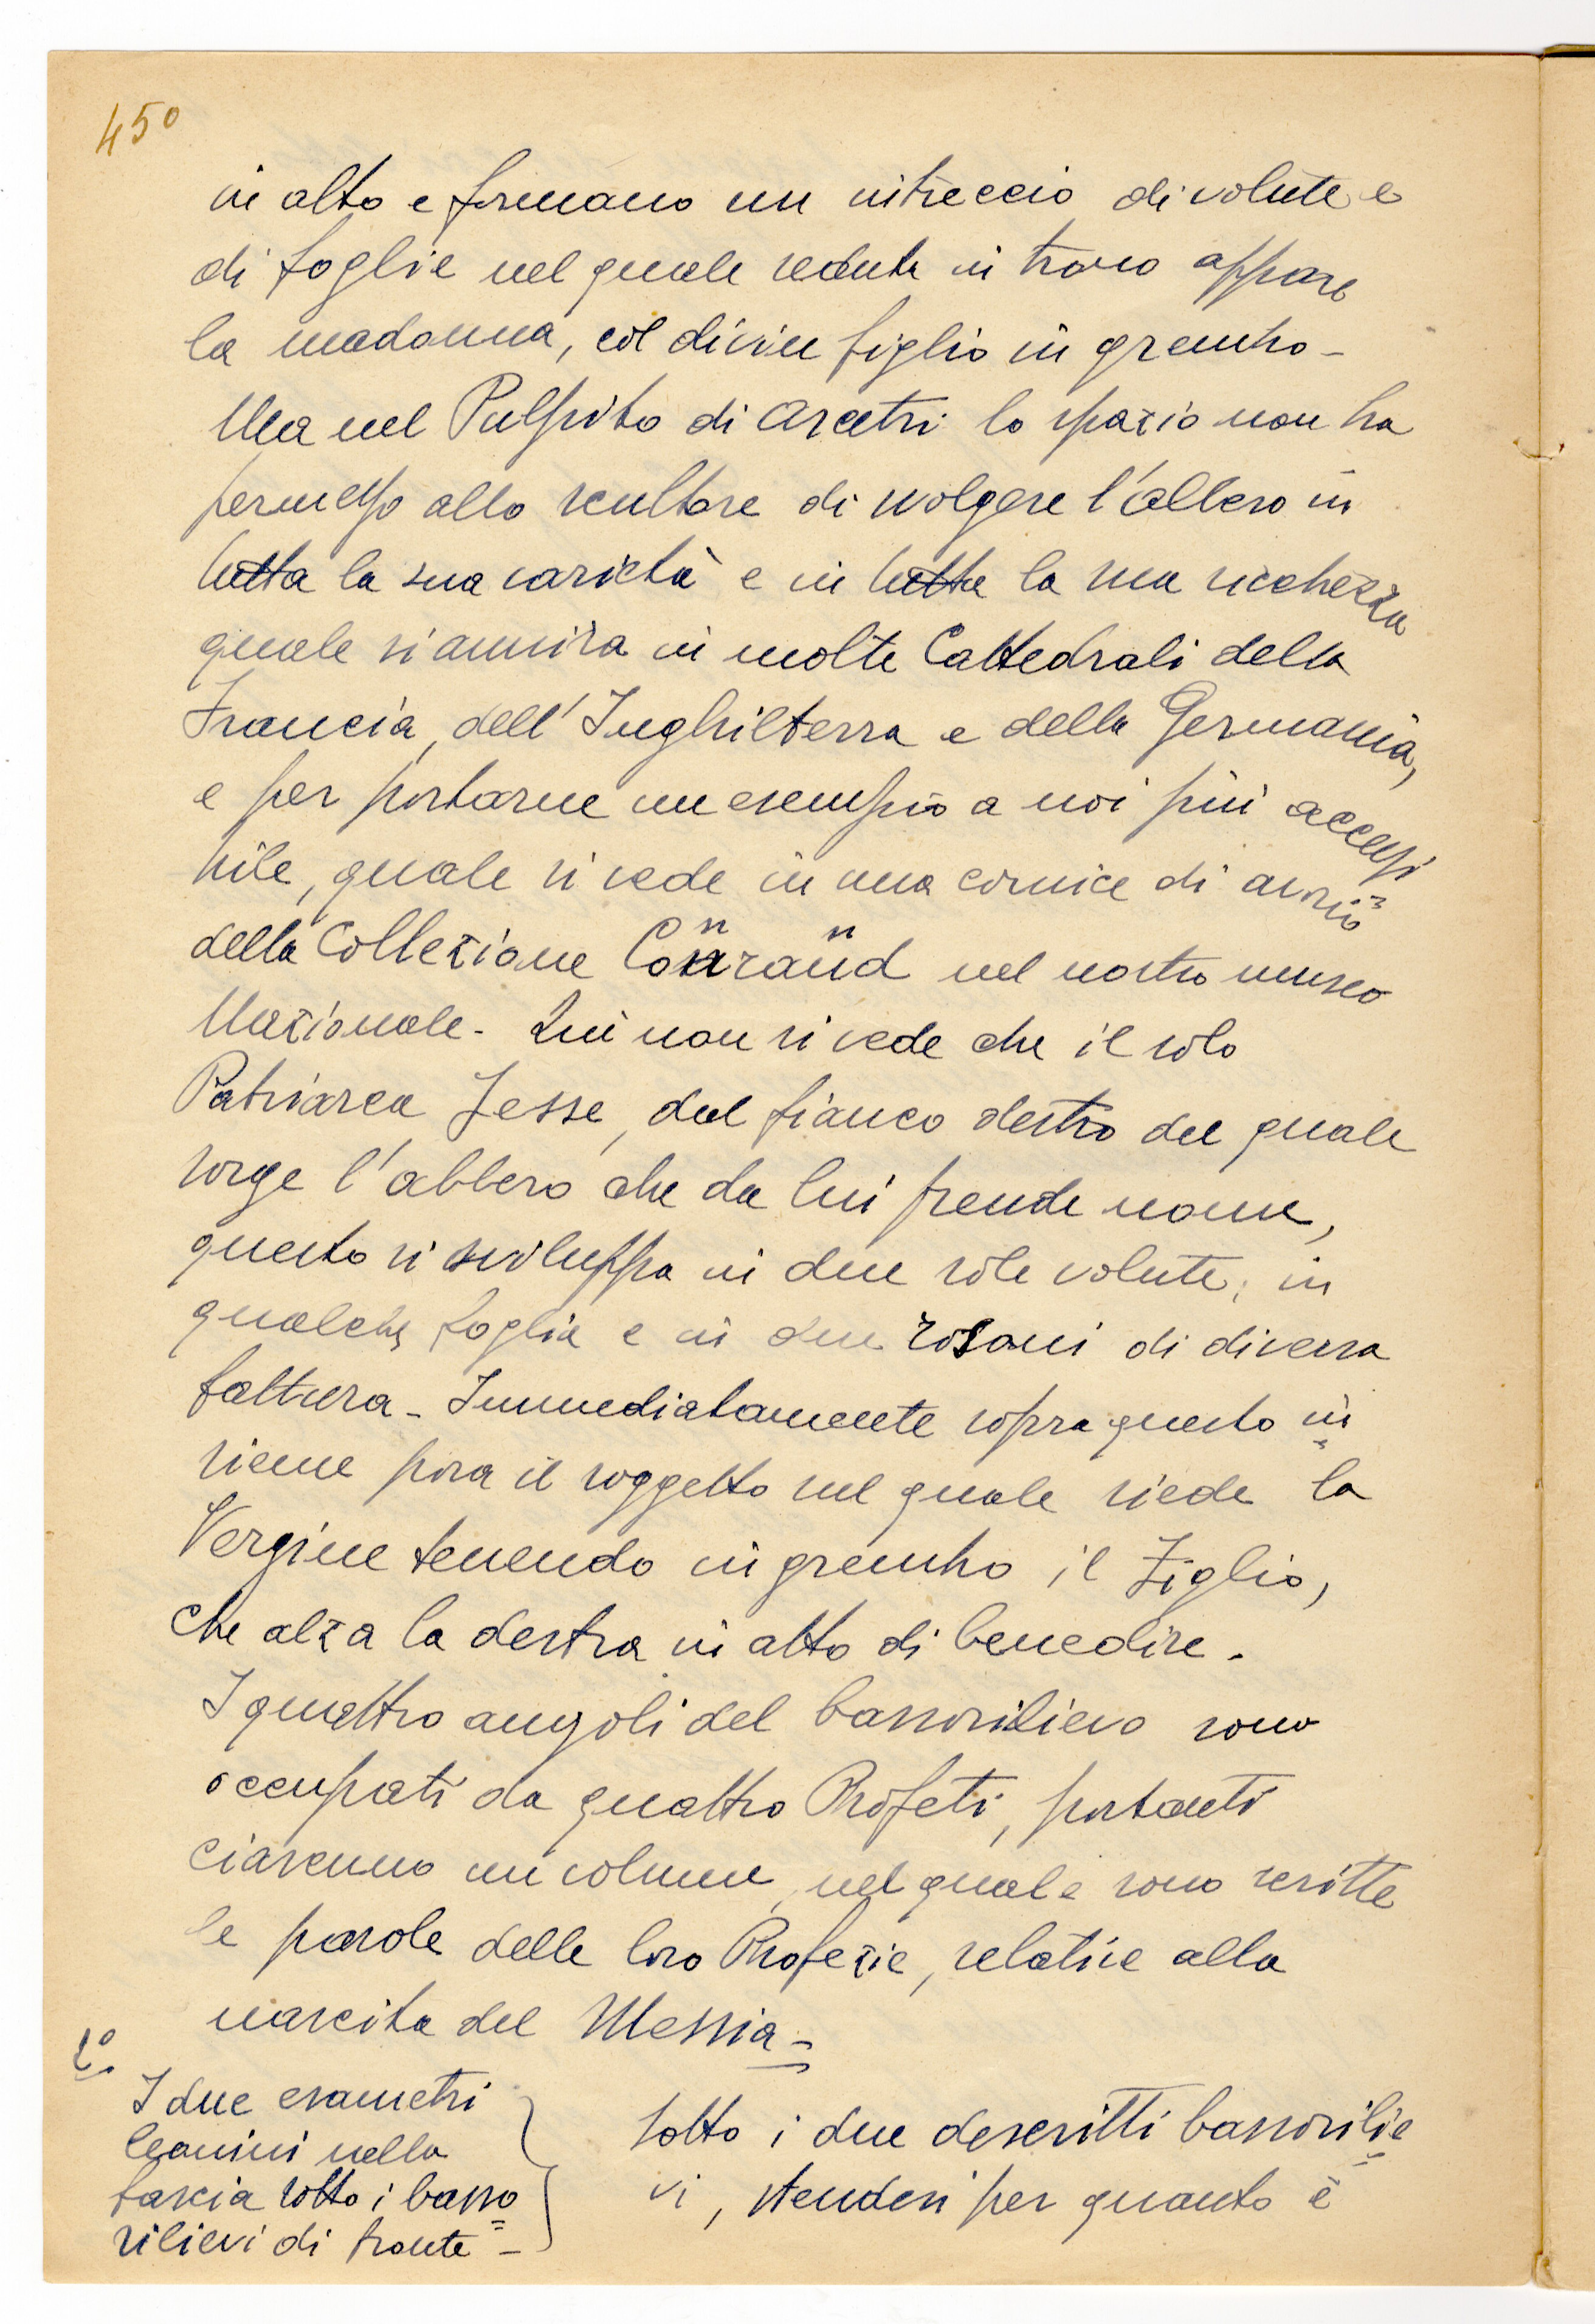 450
in alto e formano un intreccio di volute e
di foglie nel quale seduta in trono appare
la madonna, col divin figlio in grembo -
Ma nel Pulpito di Arcetri lo spazio non ha
permesso allo scultore di svolgere l'albero in
tutta la sua varietà e in tutta la sua ricchezza
quale si ammira in molte Cattedrali della
Francia, dell'Inghilterra e della Germania,
e per portarne un esempio a noi più accessi
bile, quale si vede in una cornice di avorio
della Collezione Conrand nel nostro museo
Nazionale - Qui non si vede che il solo
Patriarca Jesse, dal fianco destro del quale
sorge l'albero che da lui prende nome,
questo si sviluppa in due sole volute, in
qualche foglia e in due rosoni di diversa
fattura - Immediatamente sopra questo in
sieme posa il soggetto sul quale siede la
Vergine tenendo in grembo il Figlio,
che alza la destra in atto di benedire -
I quattro angoli del bassorilievo sono
occupati da quattro Profeti, portanti
ciascuno un volume, nel quale sono scritte
le parole delle loro Profezie, relative alla
nascita del Messia -
I due esametri
leonini nella
fascia sotto i basso
rilievi di fronte -
Sotto i due descritti bassorilie
vi, stendesi per quanto è